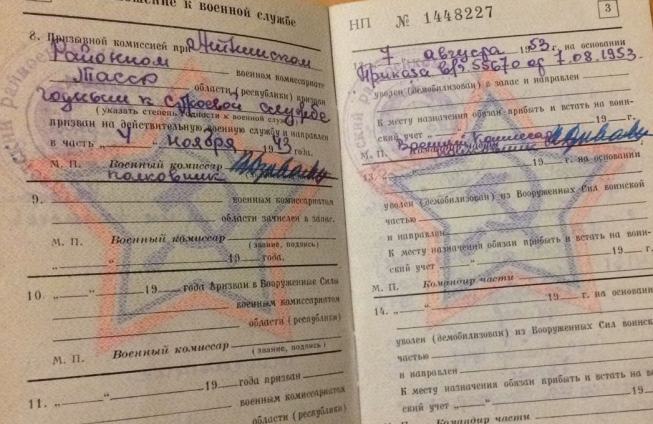 ношение к военной службе
8. Призывной комиссией при
Районном военном комиссариате
Тассо области (республики) признан
годным к строевой службе
(указать степень годности к военной службе)
призван на действительную военную службу и направлен
в часть „ 4 “ ноября 19 43 года.
М. П. Военный комиссар
полковник
9. военным комиссариатом
области зачислен в запас.
М. П. Военный комиссар
(звание, подпись)
„ “ 19 года.
10. „ “ 19 года призван в Вооруженные Силы
военным комиссариатом
области (республики)
М. П. Военный комиссар
(звание, подпись)
11. „ “ 19 года призван
военным комиссариатом
области (республики)
НП № 1448227
3
7 августа 1953 г. на основании
Приказа 55670 от 7.08.1953.
уволен (демобилизован) в запас и направлен
К месту назначения обязан прибыть и встать на воин-
ский учет 19 г.
М. П. Военный Комиссар
13. 19 г. на основании
уволен (демобилизован) из Вооруженных Сил воинской
частью
и направлен
К месту назначения обязан прибыть и встать на воин-
ский учет „ “ 19 г.
М. П. Командир части
14. „ “ 19 г. на основани
уволен (демобилизован) из Вооруженных Сил воинск
частью
и направлен
К месту назначения обязан прибыть и встать на во
ский учет „ “ 19
М. П. Командир части